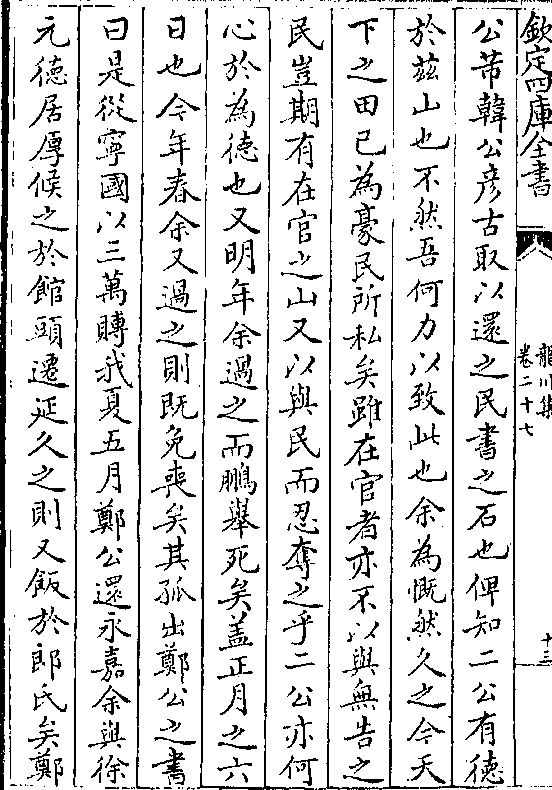 欽定四庫全書
龍川集
卷二十七
十三
公芾韓公彦古取以還之民書之石也俾知二公有徳
於兹山也不然吾何力以致此也余為慨然久之今天
下之田已為豪民所私矣雖在官者亦不以與無告之
民豈期有在官之山又以與民而忍奪之乎二公亦何
心於為徳也又明年余過之而鵬舉死矣盖正月之六
日也今年春余又過之則既免喪矣其孤出鄭公之書
曰是從寧國以三萬賻我夏五月鄭公還永嘉余與徐
元徳居厚候之於館頭遷延久之則又飯於郎氏矣鄭